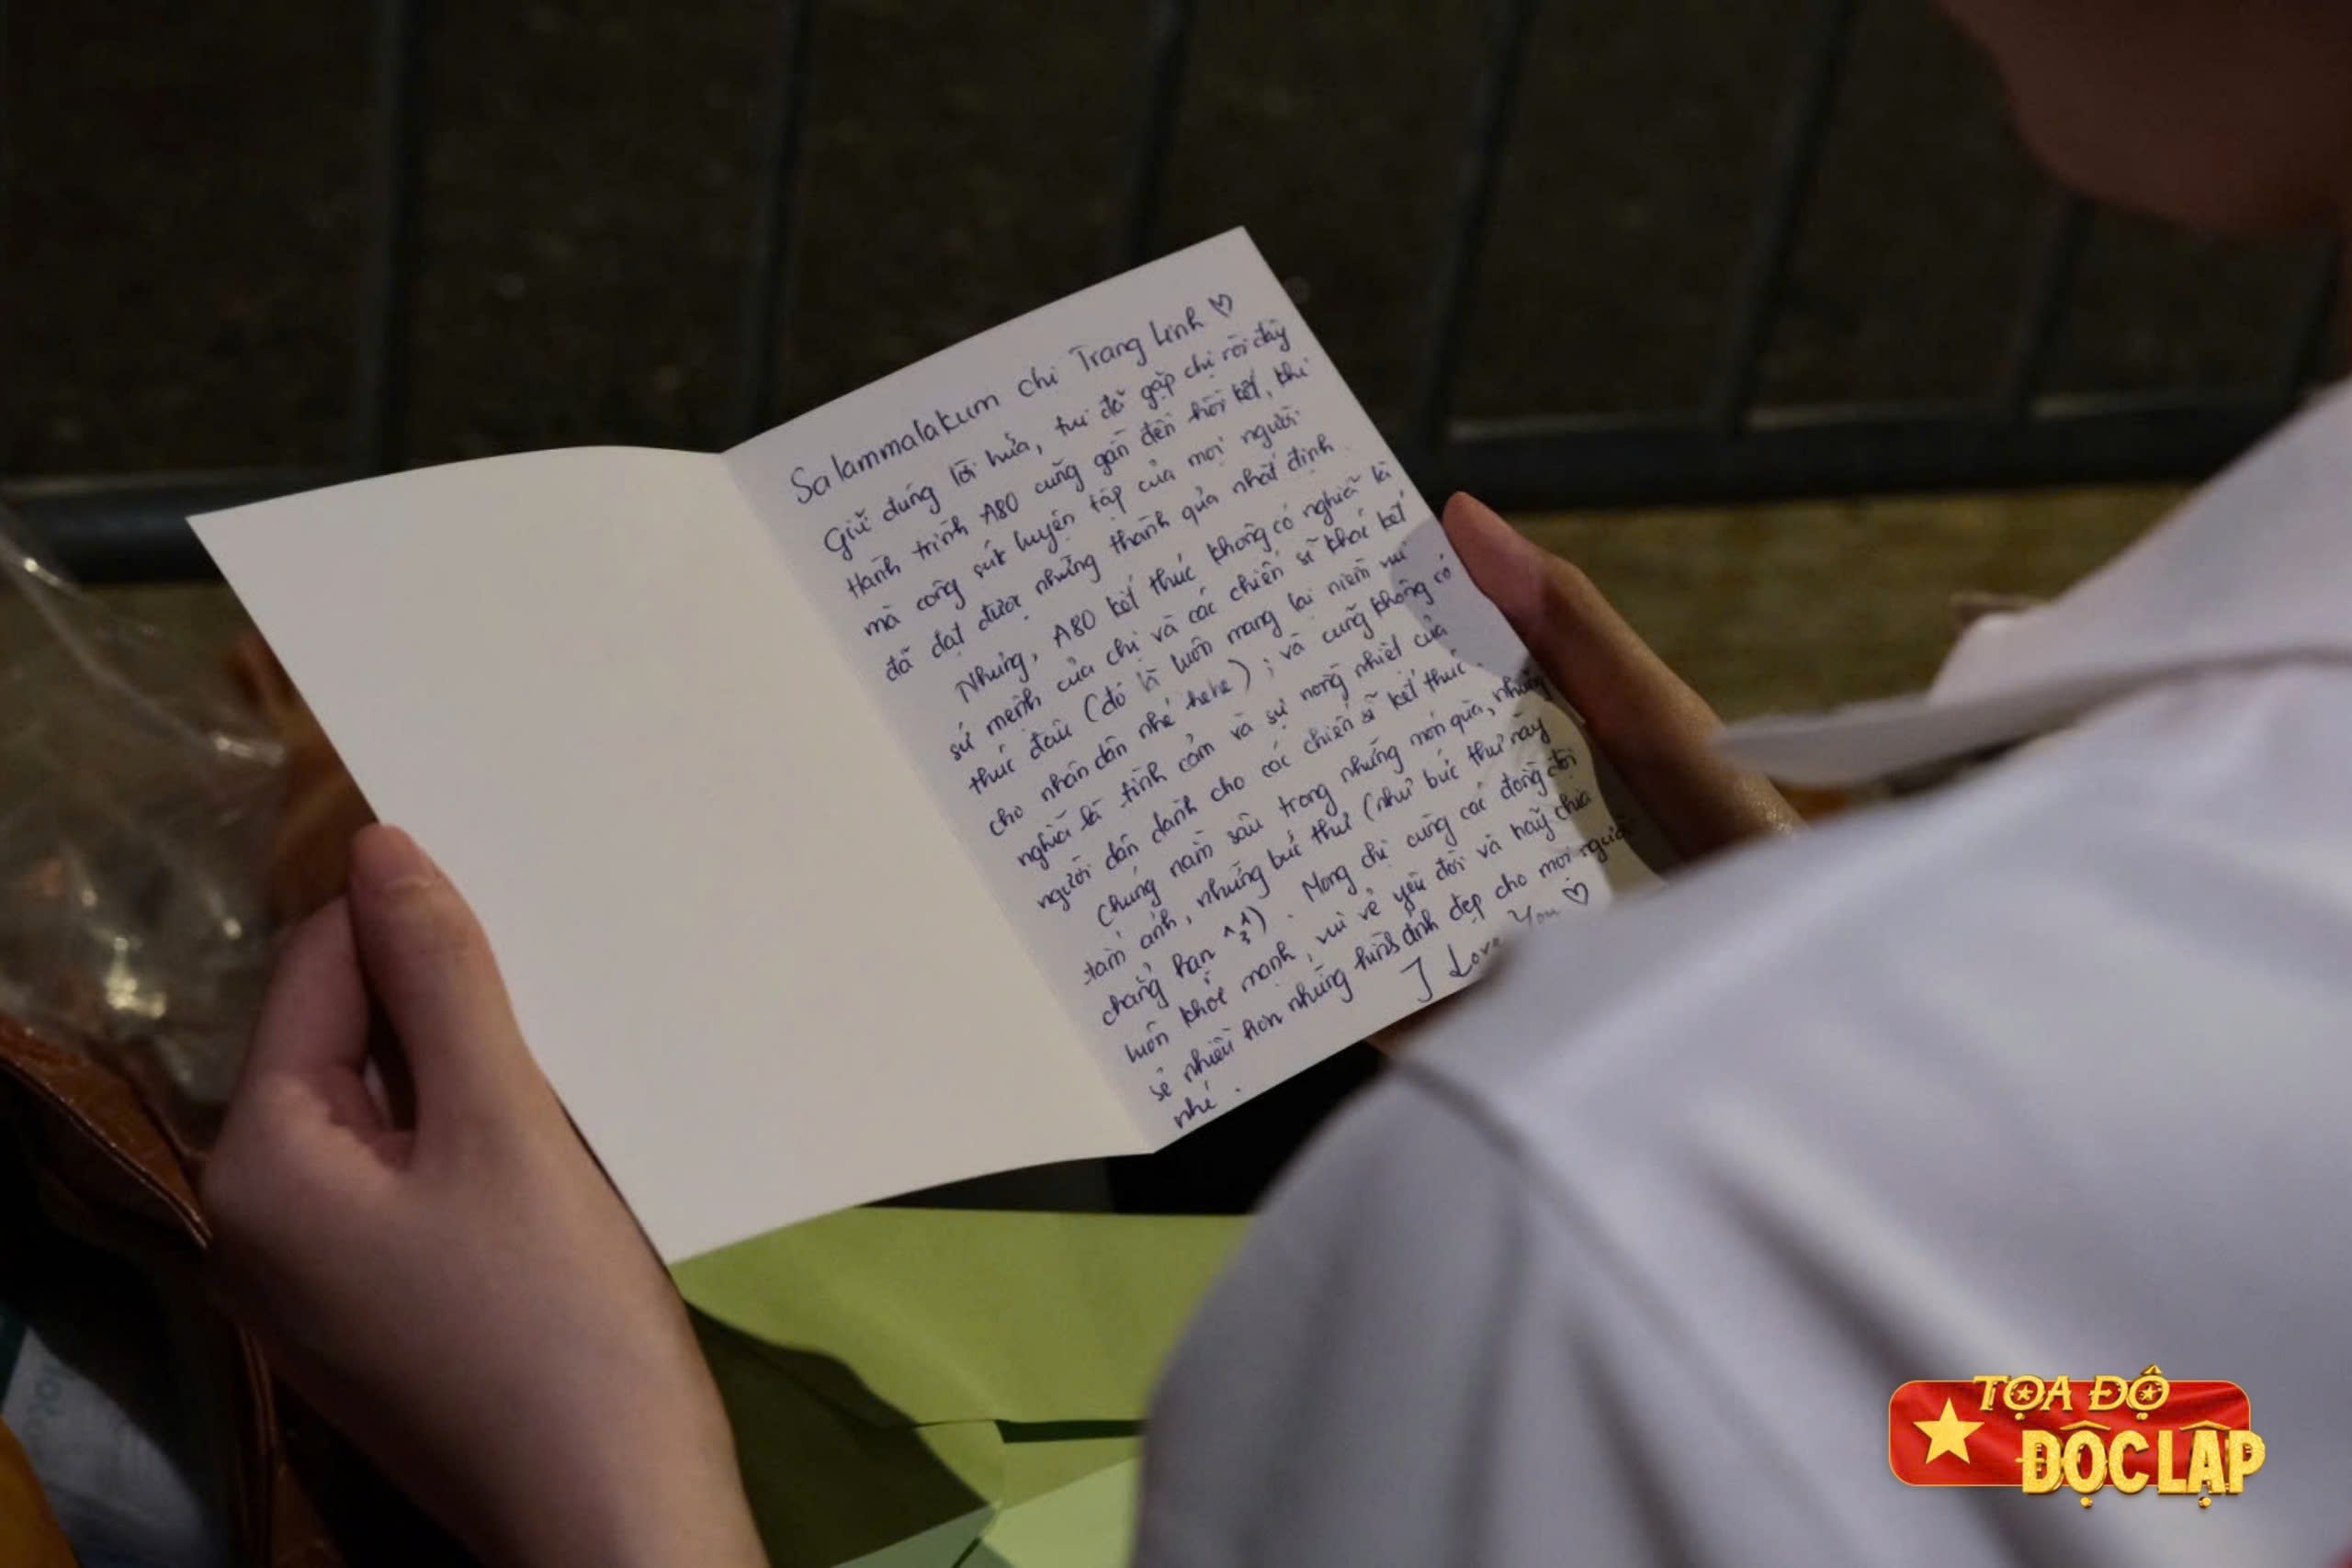 Salammalakum chị Trang Linh ♡
Giữ đúng lời hứa, tui đã gặp chị rồi đây
Hành trình A80 cũng gần đến hồi kết, khi
mà công sức luyện tập của mọi người
đã đạt được những thành quả nhất định.
Nhưng, A80 kết thúc không có nghĩa là
sứ mệnh của chị và các chiến sĩ khác kết
thúc đâu (đó là luôn mang lại niềm vui
cho nhân dân nhé hehe); và cũng không có
nghĩa là tình cảm và sự nồng nhiệt của
người dân dành cho các chiến sĩ kết thúc.
Chúng nằm sâu trong những món quà, những
tấm ảnh, những bức thư (như bức thư này
chẳng hạn ^3^). Mong chị cùng các đồng đội
luôn khỏe mạnh, vui vẻ yêu đời và hãy chia
sẻ nhiều hơn những hình ảnh đẹp cho mọi người
nhé.
I Love You ♡
TỌA ĐỘ
ĐỘC LẬP